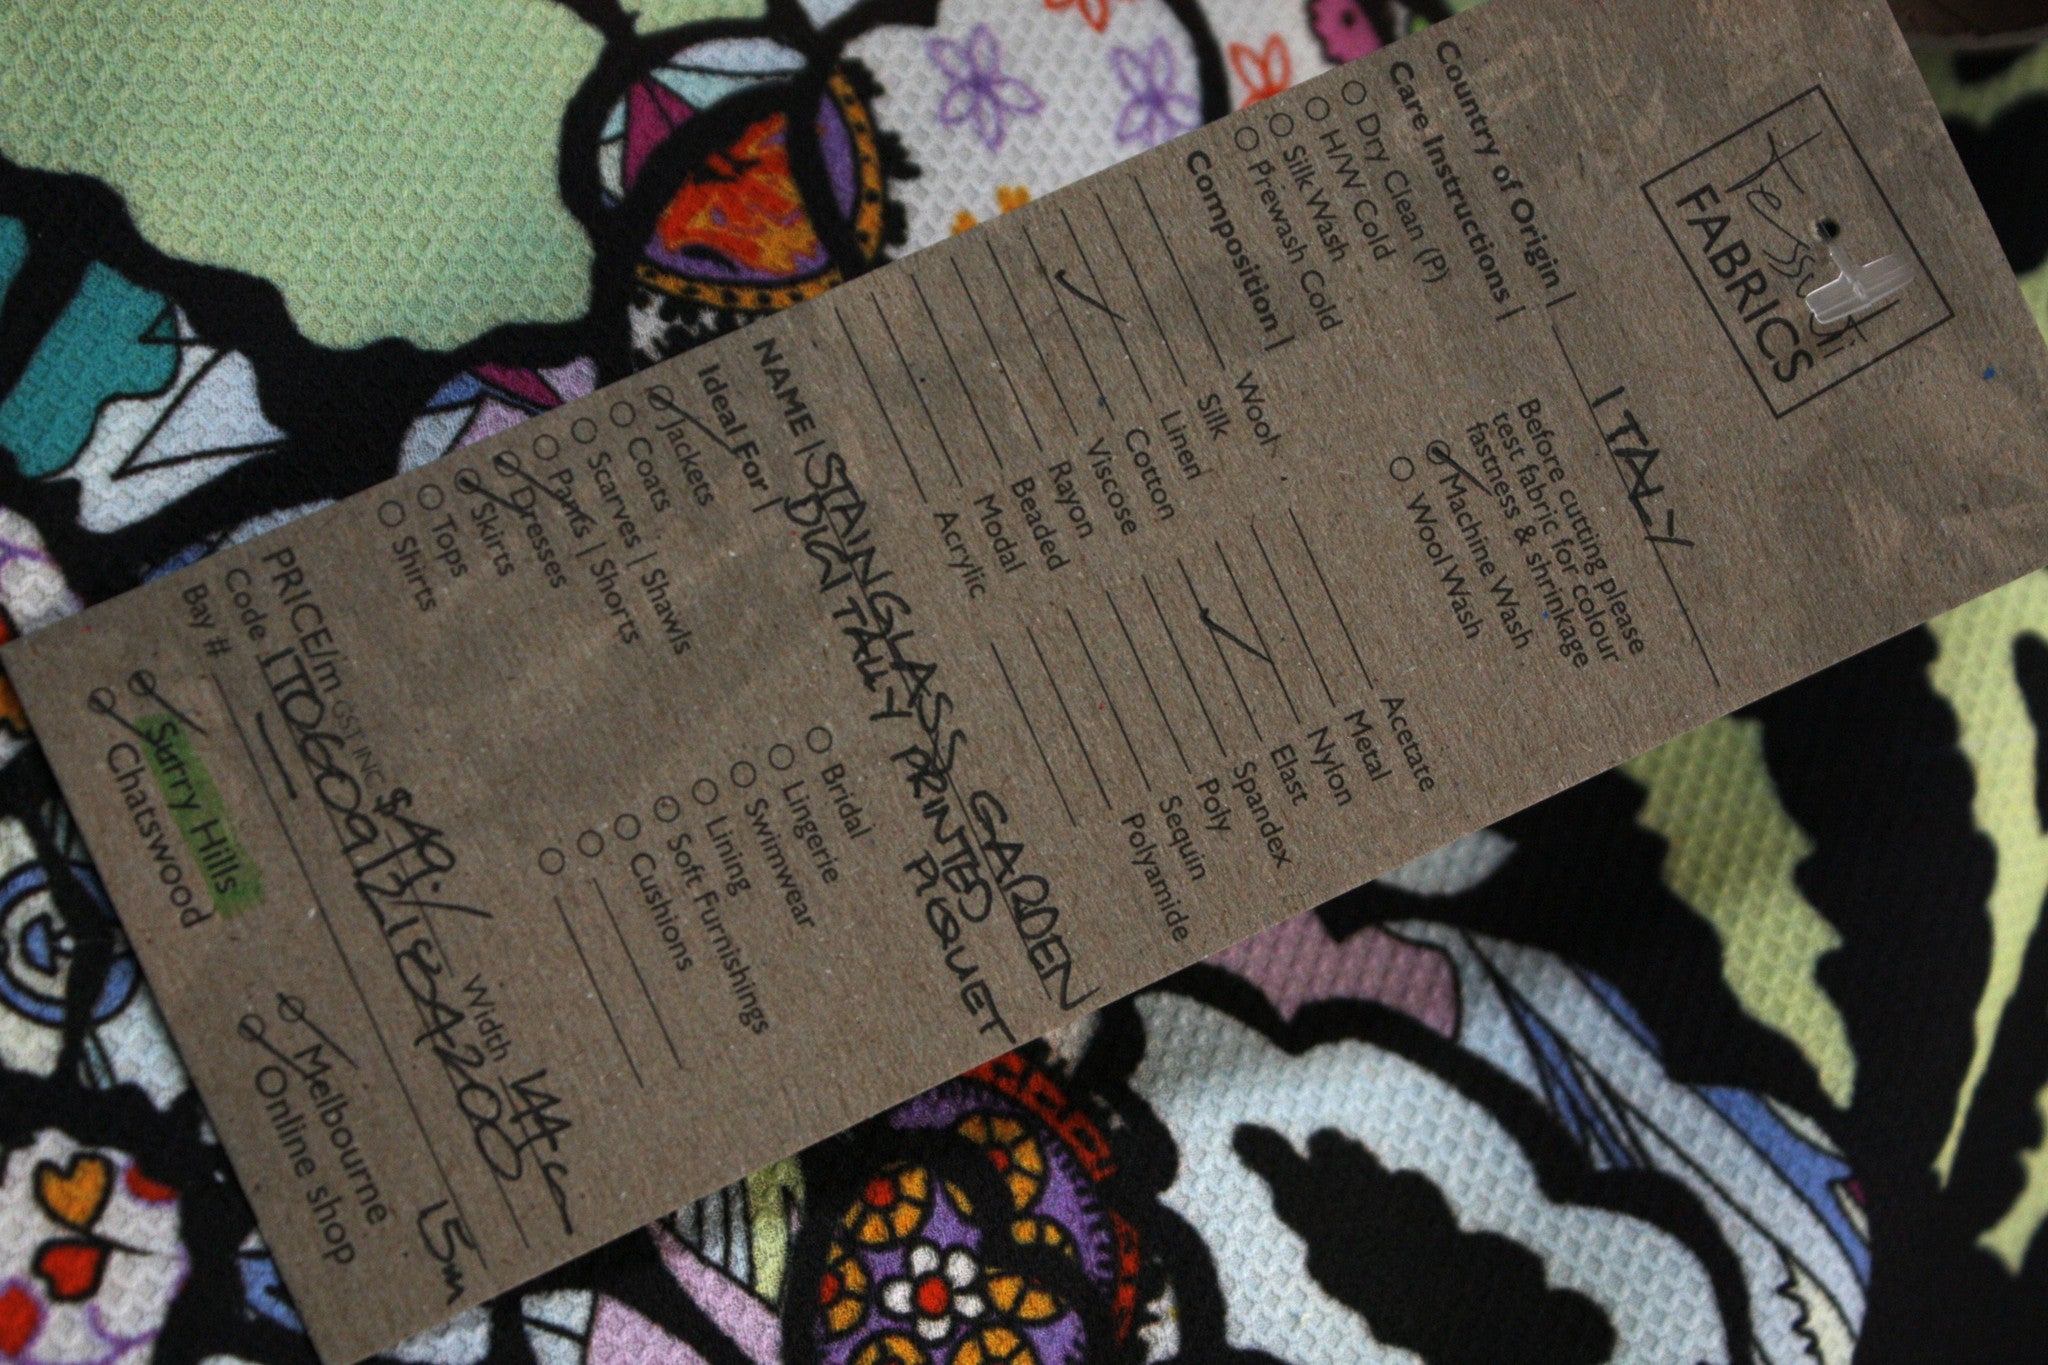 Tessuti
FABRICS
Country of Origin | ITALY
Care Instructions |
Dry Clean (P)
H/W Cold
Silk Wash
Prewash Cold
Before cutting please
test fabric for colour
fastness & shrinkage
Machine Wash
Wool Wash
Composition |
Wool
Silk
Linen
Cotton
Viscose
Rayon
Beaded
Modal
Acrylic
Acetate
Metal
Nylon
Elast
Spandex
Poly
Sequin
Polyamide
NAME | STAINGLASS GARDEN
DIGITALLY PRINTED PIQUET
Ideal For |
Jackets
Coats
Scarves | Shawls
Pants | Shorts
Dresses
Skirts
Tops
Shirts
Bridal
Lingerie
Swimwear
Lining
Soft Furnishings
Cushions
PRICE/m GST INC $49./ Width 144cm
Code ITO60912184200
Bay # — 15m
Surry Hills
Chatswood
Melbourne
Online shop